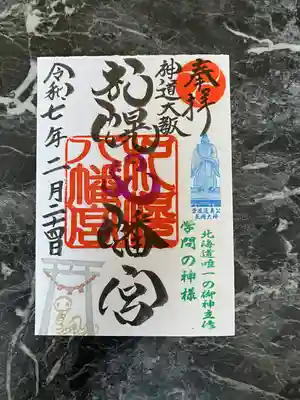 奉拝
神道大教
札幌八幡宮
八幡宮
令和七年二月二十四日
菅原道真公
天満大神
北海道唯一の御神立像
学問の神様